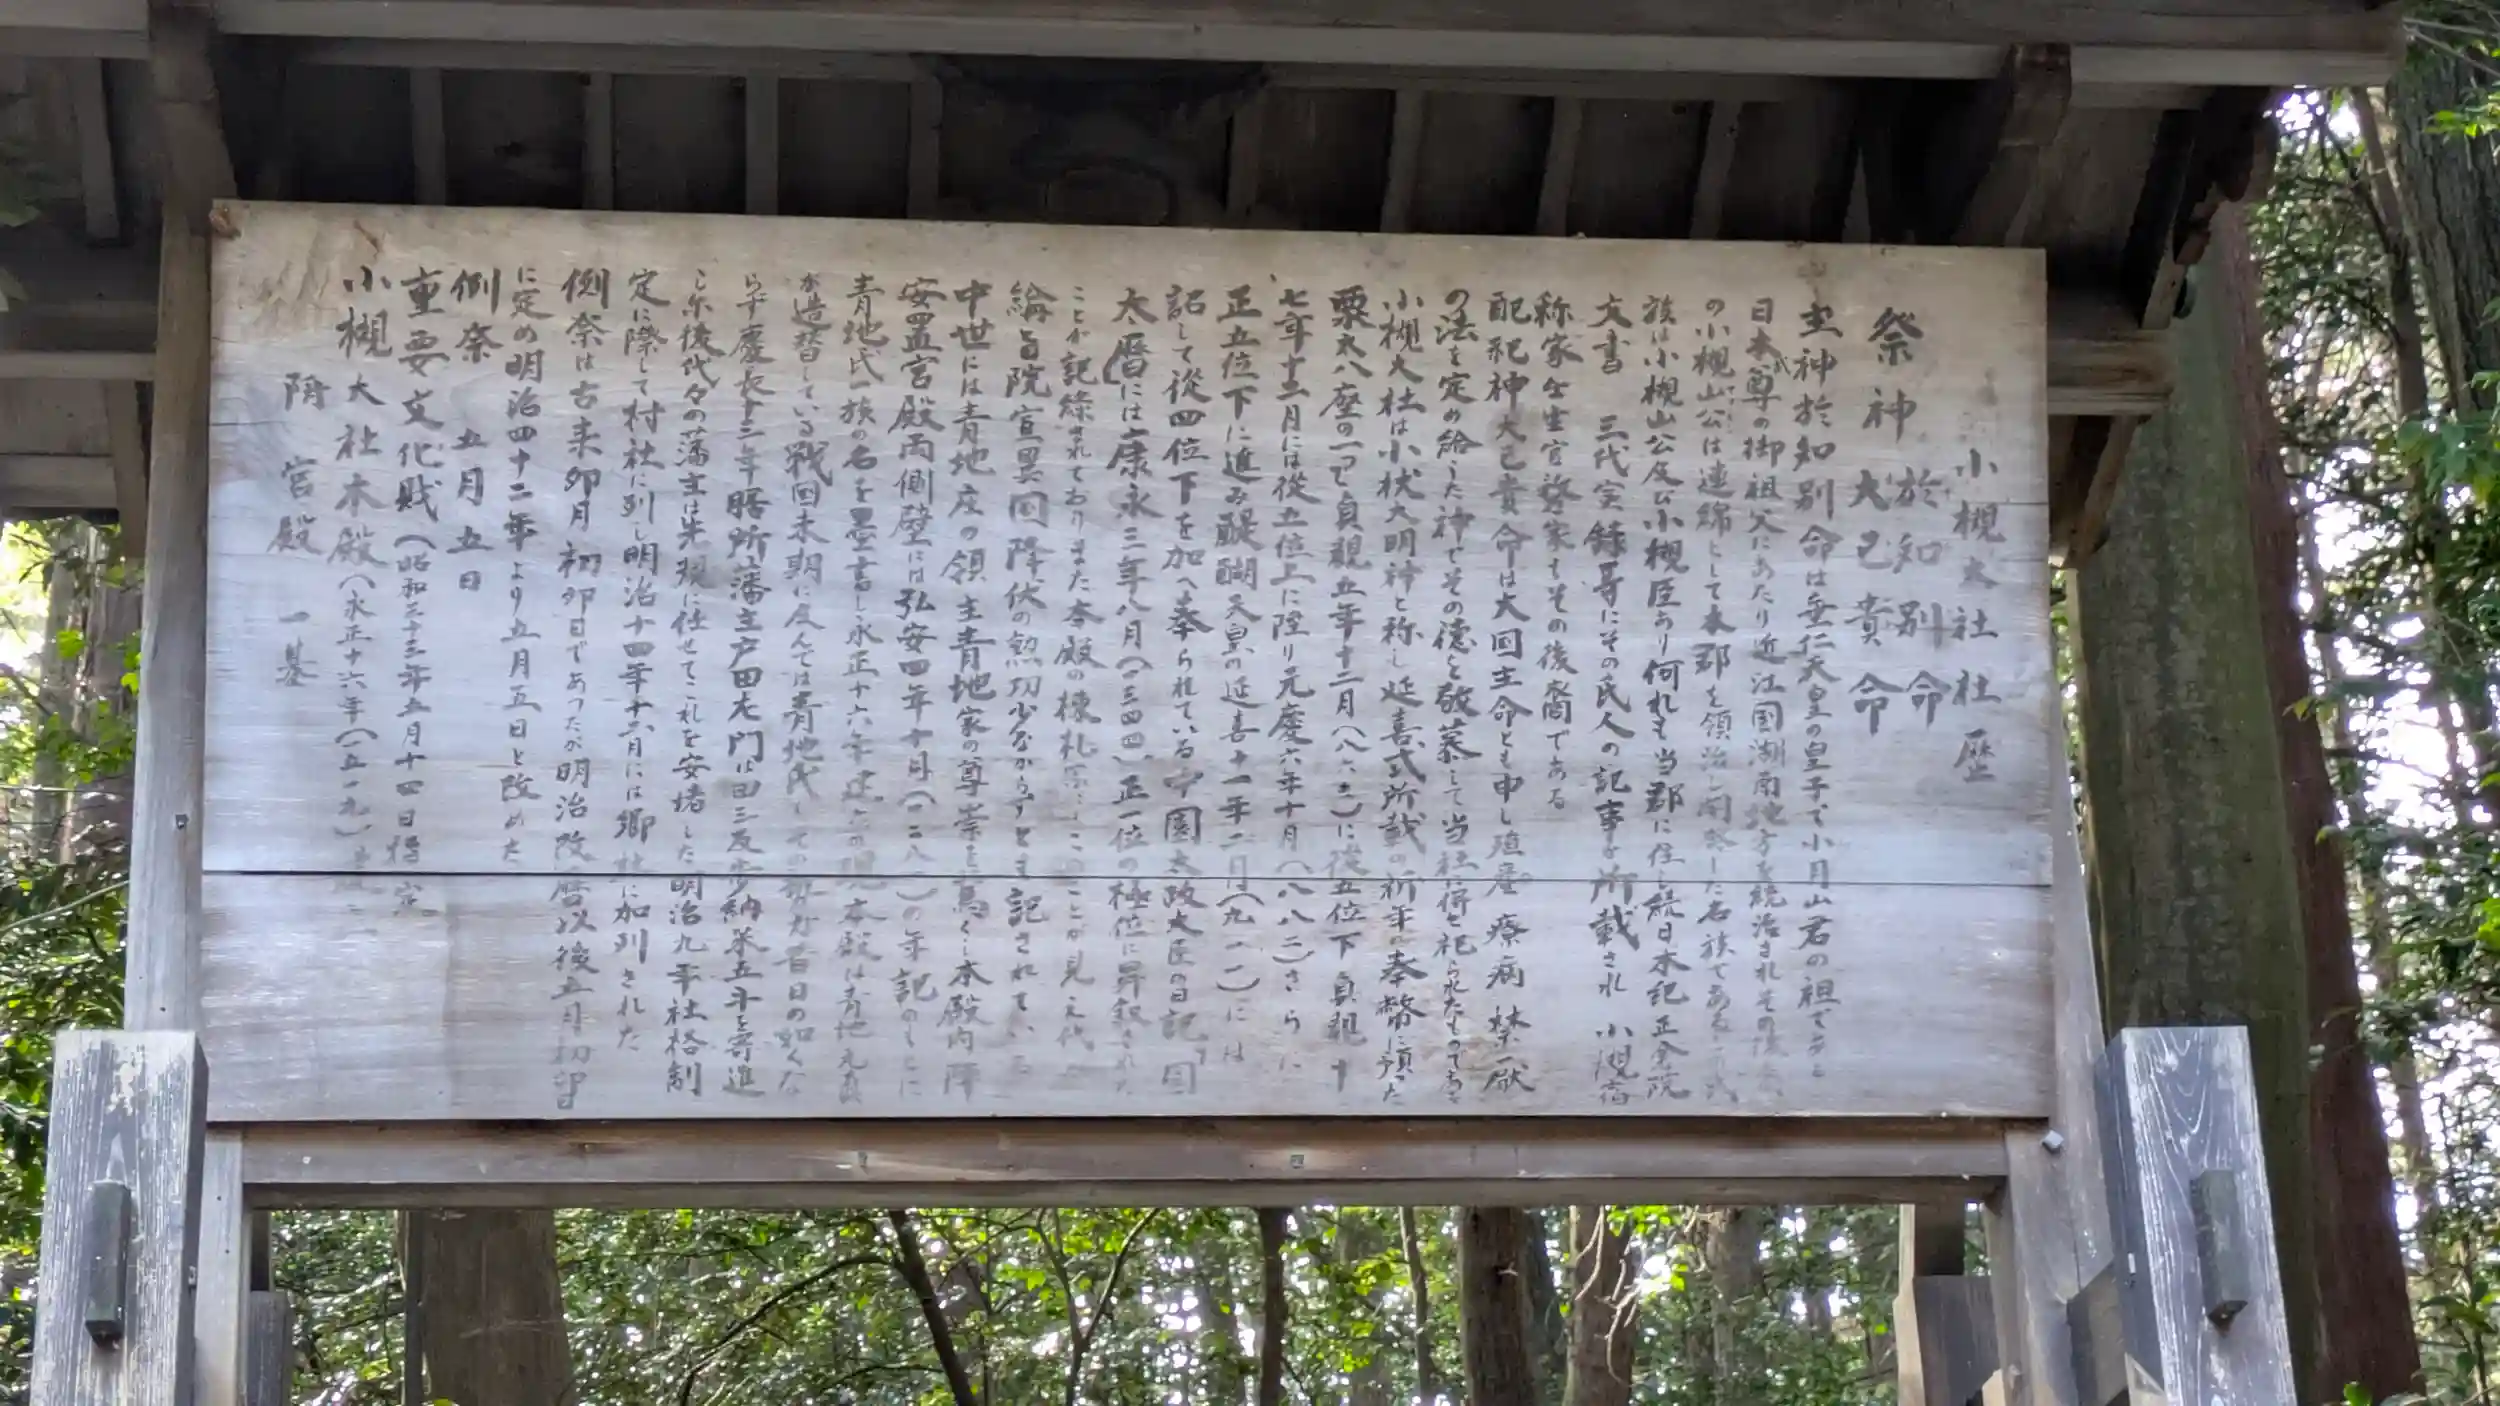 小槻大社社歴
祭神 於知別命
大己貴命
主神於知別命は垂仁天皇の皇子で小月山君の祖であ
日本武尊の御祖父にあたり近江国湖南地方を統治されその後
の小槻山公は連綿として本郡を領治し開発した名族である
族は小槻山公及び小槻臣あり何れも当郡に住し続日本紀正倉院
文書 三代実録等にその氏人の記事が所載され 小槻宿
称家壬生官務家もその後裔である
配祀神大己貴命は大国主命とも申し殖産 療病 禁厭
の法を定め給うた神でその徳を敬慕して当社に併せ祀られたものである
小槻大社は小杖大明神と称し延喜式所載の祈年の奉幣に預った
栗太八座の一つで貞観五年十二月(八六三)に従五位下貞観十
七年十二月には従五位上に陞り元慶六年十月(八八二)さらに
正五位下に進み醍醐天皇の延喜十一年二月(九一一)には
詔して従四位下を加へ奉られている中園太政大臣の日記「園
太暦」には康永三年八月(一三四四)正一位の極位に昇叙された
ことが記録されておりまた本殿の棟札にもこのことが見え代々
綸旨院宣異国降伏の懃功少なからずとも記されている
中世には青地庄の領主青地家の尊崇を篤くし本殿内陣
安置宮殿両側壁には弘安四年十月(一二八一)の年記のもとに
青地氏一族の名を墨書し永正十六年建立の現本殿は青地元真
が造替している戦国末期に及んでは青地氏しての勢力昔日の如くな
らず慶長十三年膳所藩主戸田左門は田三反歩納米五斗を寄進
し尓後代々の藩主は先規に任せてこれを安堵した明治九年社格制
定に際して村社に列し明治十四年十二月には郷社に加列された
例祭は古来卯月初卯日であったが明治改暦以後五月初卯日
に定め明治四十二年より五月五日と改めた
例祭 五月五日
重要文化財(昭和三十三年五月十四日指定)
小槻大社本殿(永正十六年(一五一九)建立)
附 宮殿 一基